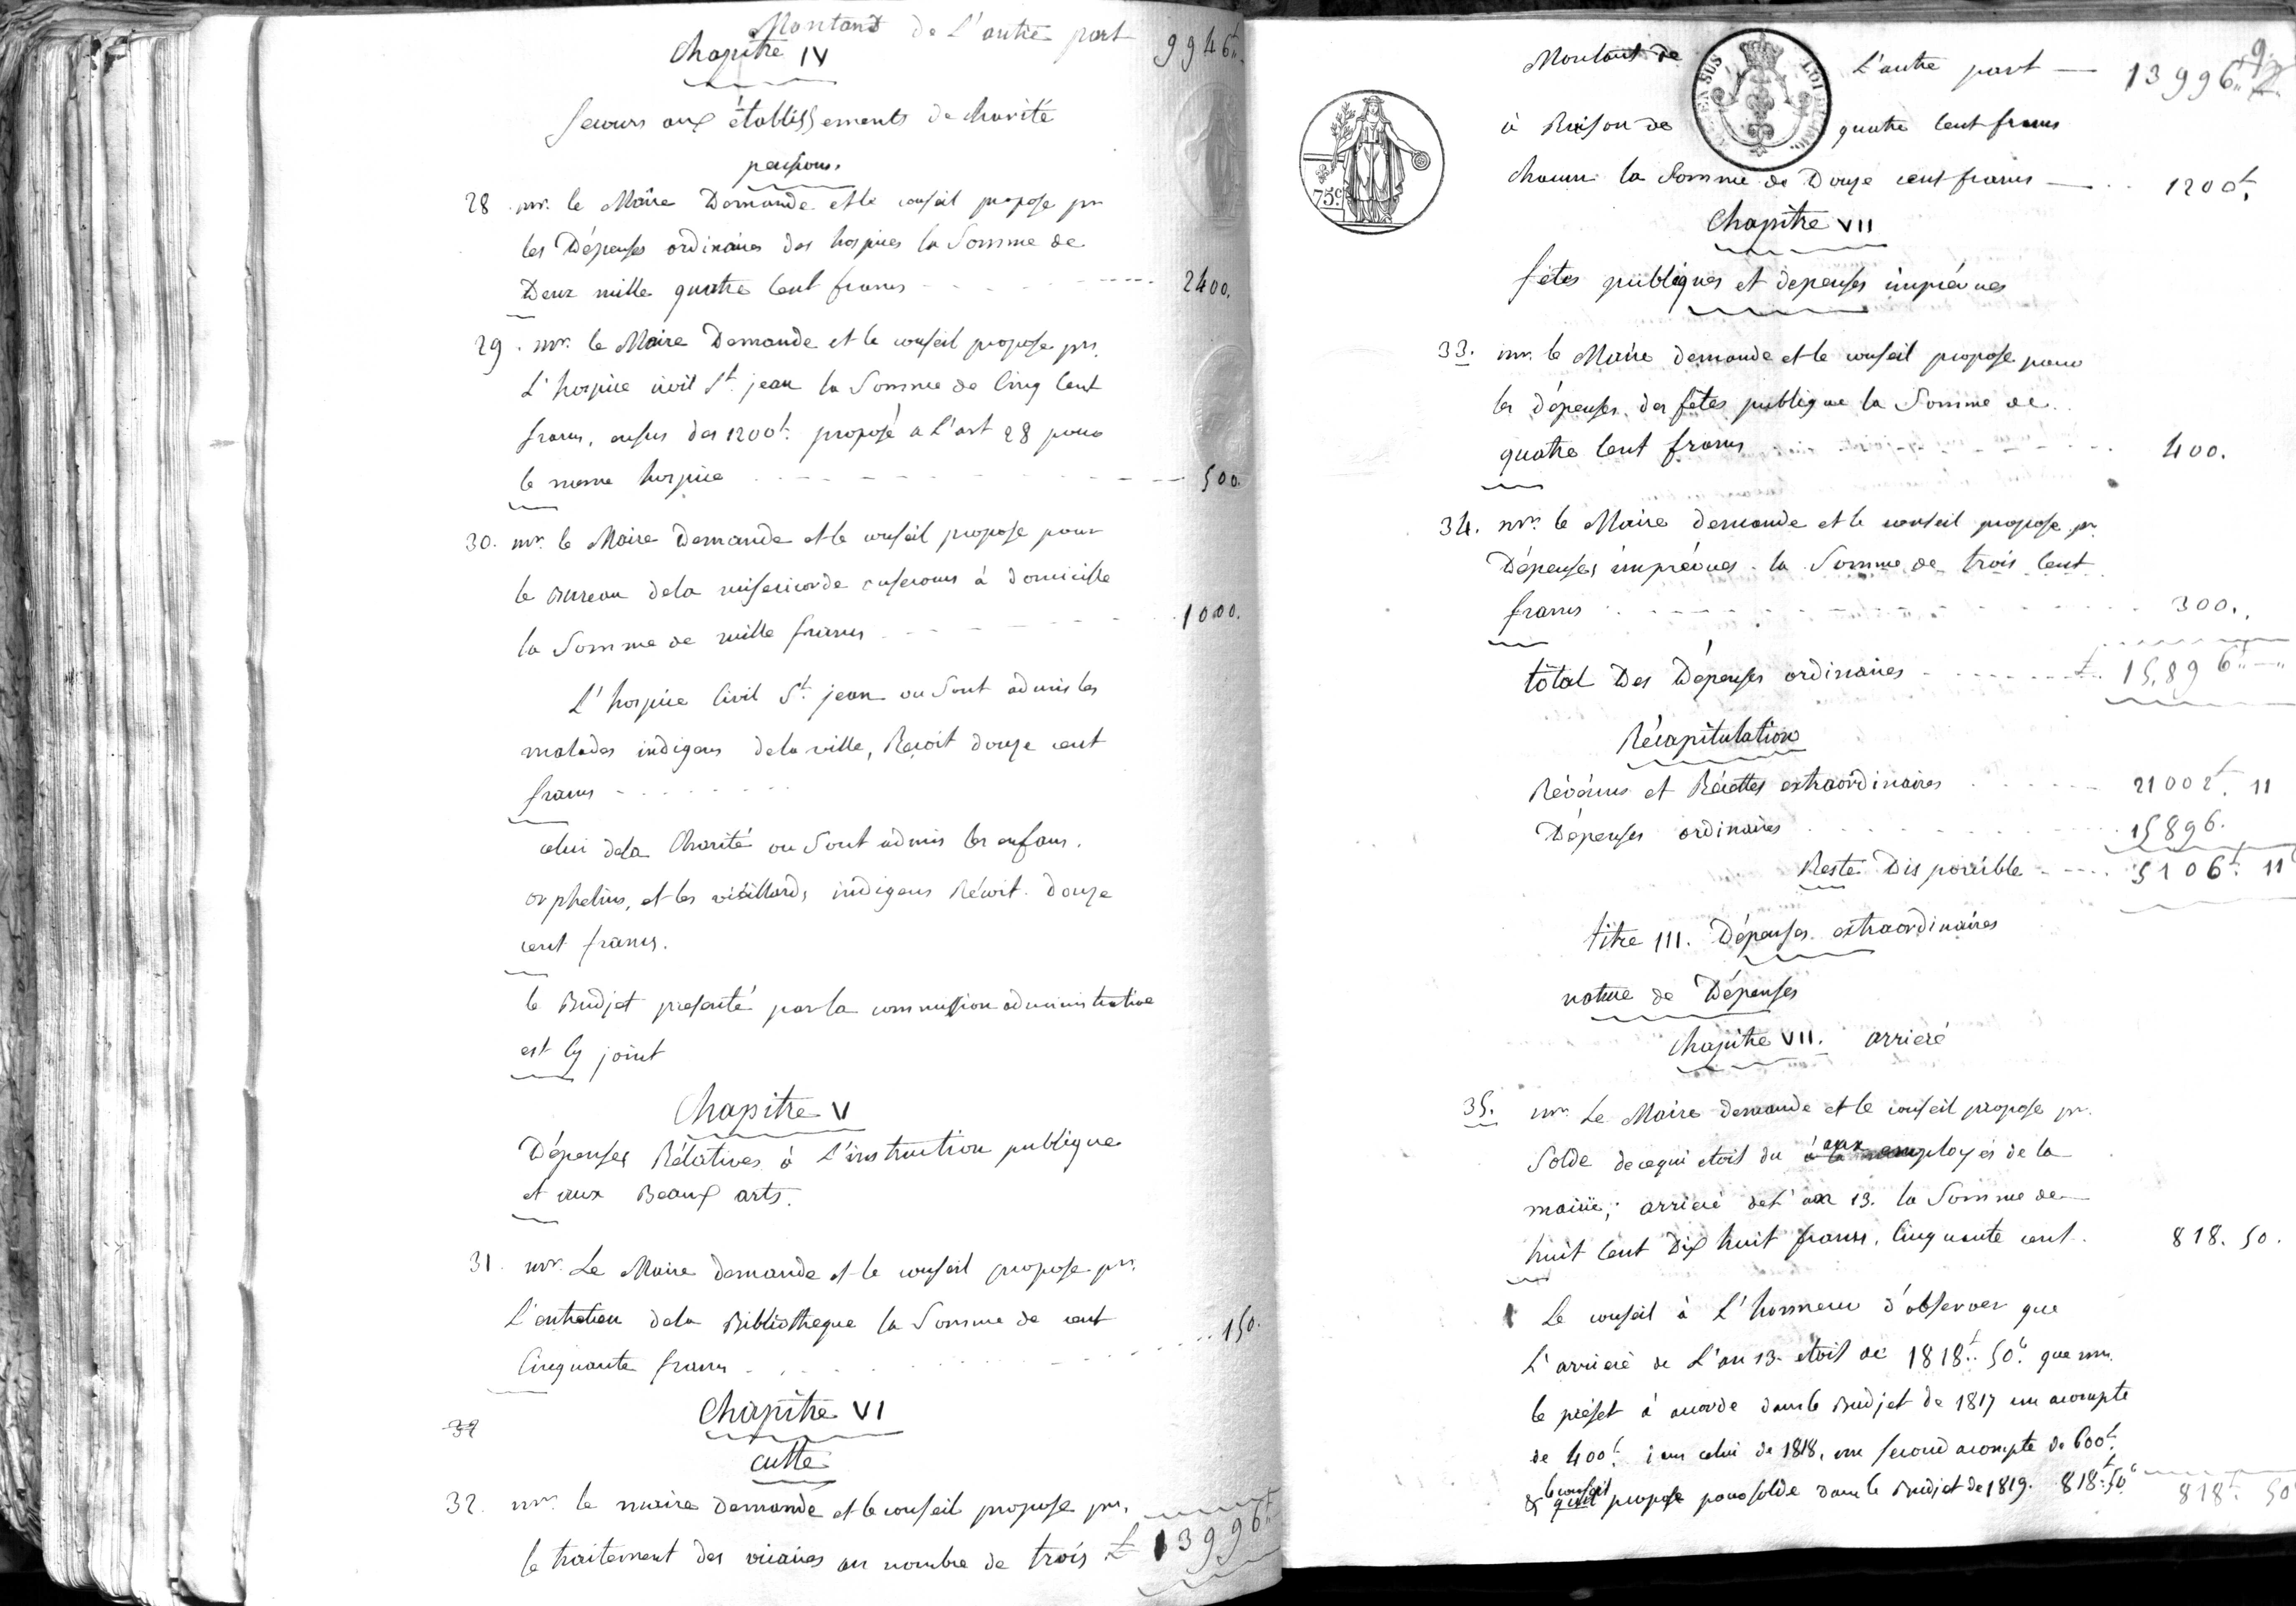 Montant de L'autre part 9946ᶠ
Chapitre IV
Secours aux établissements de charité
pensions.
28 . mr. le Maire Demande et le conseil propose pr
les Dépenses ordinaires des hospices la Somme de
Deux mille quatre Cent francs - - - - 2400.
29 . mr. le Maire Demande et le conseil propose pr.
L'hospice civil St. jean la Somme de Cinq Cent
francs, ensus des 1200ᶠ. proposé a L'art 28 pour
le meme hospice - - - - 500.
30. mr. le Maire Demande et le conseil propose pour
le Bureau dela misericorde enserours à domicille
la Somme de mille francs - - - - 1000.
L'hospice Civil St. jean ou Sont admis les
malades indigens dela ville, Reçoit douze cent
francs - - - -
celui dela Charité ou Sont admis les enfans.
orphelins, et les vieillards indigens Récoit. douze
cent francs.
le Budjet presenté par la commission administrative
est Cy joint
Chapitre V
Dépenses Rélatives à L'instruction publique
et aux Beaux arts.
31. mr. Le Maire demande et le conseil propose pr.
L'entretien dela Bibliotheque la Somme de cent
Cinquante francs - - - - 150.
Chapitre VI
32
culte
32. mr. le maire demande et le conseil propose pr.
le traitement des vicaires au nombre de trois £ 13996ᶠ
Montant de L'autre part — 13996ᶠ
9
EN SUS
75ᶜ
à Raison de quatre Cent francs
chacun la Somme de Douze cent francs — 1200ᶠ.
Chapitre VII
fêtes publiques et depenses imprévues
33. mr. le Maire demande et le conseil propose pour
les dépenses des fêtes publique la Somme de
quatre Cent francs - - - - 400.
34. mr. le Maire demande et le conseil propose pr.
Dépenses imprévues la Somme de trois Cent
francs - - - - 300.
total Des Dépenses ordinaires - - - - £ 15,896ᶠ
Récapitulation
Révénus et Récettes extraordinaires - - - - 21002ᶠ. 11
Dépenses ordinaires - - - - 15896.
Reste Disponible - - - - 5106ᶠ. 11
titre III. Dépenses extraordinaires
nature de Dépenses
Chapitre VII. arrieré
35. mr. Le Maire demande et le conseil propose pr.
Solde de cequi etoit du aux employés de la
mairie; arrieré del'an 13. la Somme de
huit Cent Dix huit francs, Cinquante cent. 818. 50.
Le conseil à L'honneur d'observer que
L'arrieré de L'an 13. etoit de 1818ᶠ. 50ᶜ. que mr.
le préfet à accordé dans le Budjet de 1817 un acompte
de 400ᶠ. dans celui de 1818. un second acompte de 600ᶠ.
le conseil
& qu'il propose pour solde dans le Budjet de 1819. 818ᶠ.50ᶜ 818ᶠ. 50